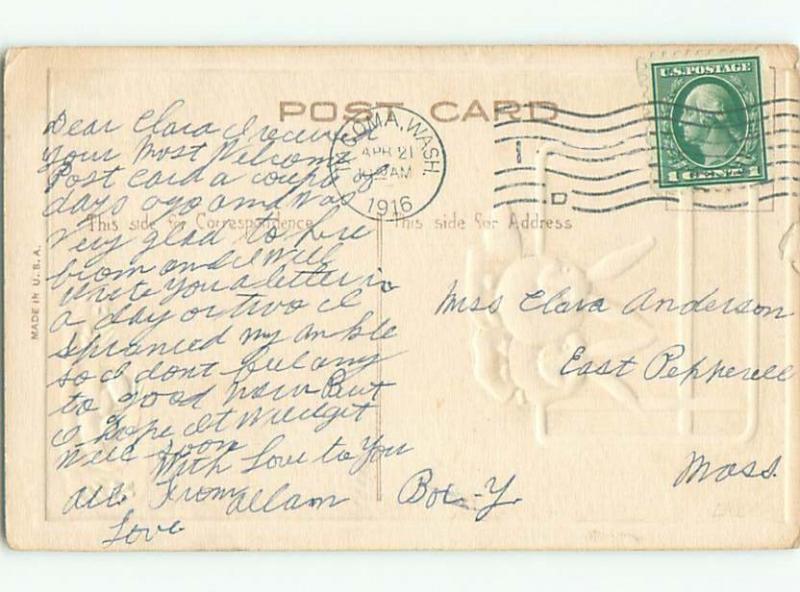 POST CARD
U.S. POSTAGE
1 CENTS 1
COMA, WASH.
APR 21
AM
1916
D
This side for Correspondence
This side for Address
MADE IN U.S.A.
Dear Clara I received
your Most Welcome
Post Card a coupl of
days ago and Was
very glad to here
from and I Will
write you a letter in
a day or two I
spranied my ankle
so I dont feel any
to good now But
I hope It Will get
Well soon
With Love to You
all From Allam
Love
Miss Clara Anderson
East Pepperell
Mass.
Box-Y